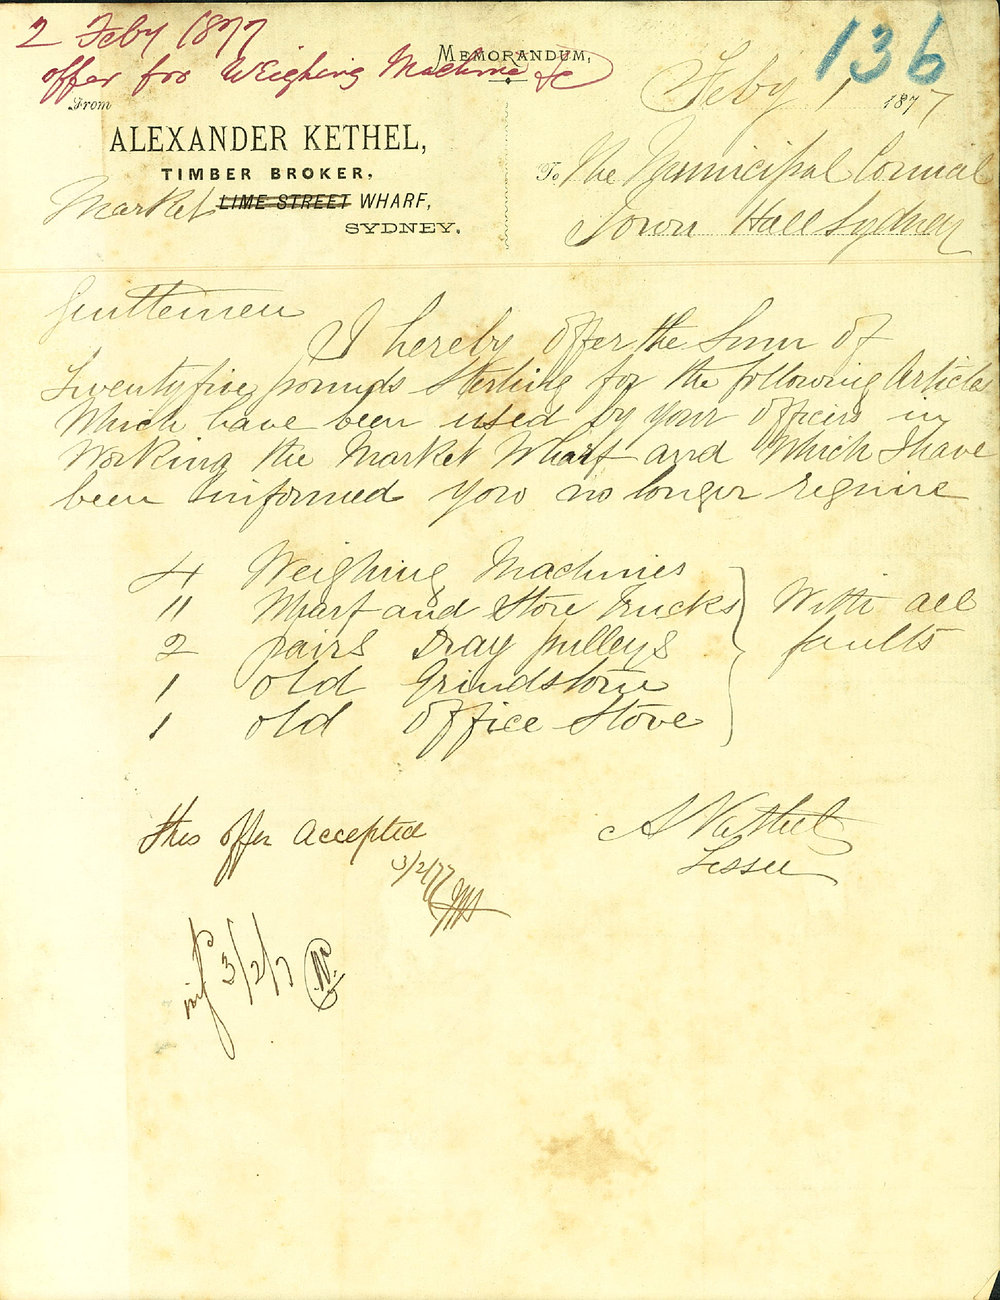 2 Feby 1877
offer for Weighing Machine &c
136
MEMORANDUM,
Feby 1 1877
From
ALEXANDER KETHEL,
TIMBER BROKER,
Market LIME STREET WHARF,
SYDNEY,
To The Municipal Council
Town Hall Sydney
Gentlemen
I hereby offer the Sum of
Twentyfive pounds Sterling for the following Articles
Which have been used by your officers in
Working the Market Wharf and Which I have
been informed you no longer require
4 Weighing Machines
11 Wharf and Store Trucks
2 pairs Dray pulleys
1 old Grindstone
1 old office Stove
With all
faults
A Kethel
Lessee
This offer accepted
3/2/77
3/2/7